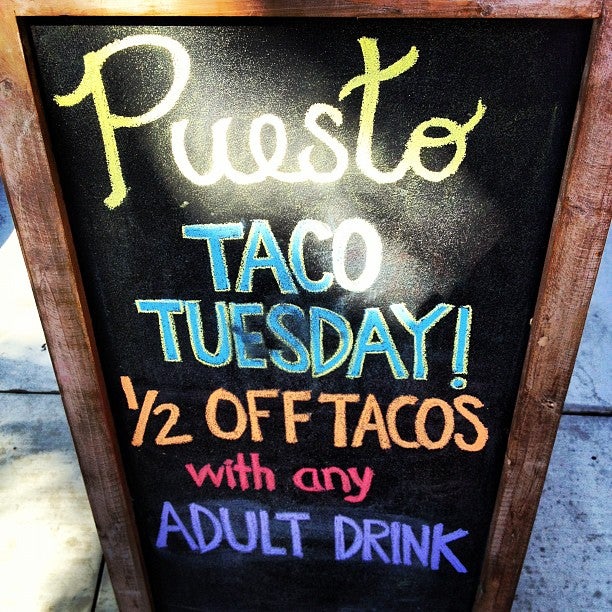 Puesto
TACO
TUESDAY!
1/2 OFF TACOS
with any
ADULT DRINK